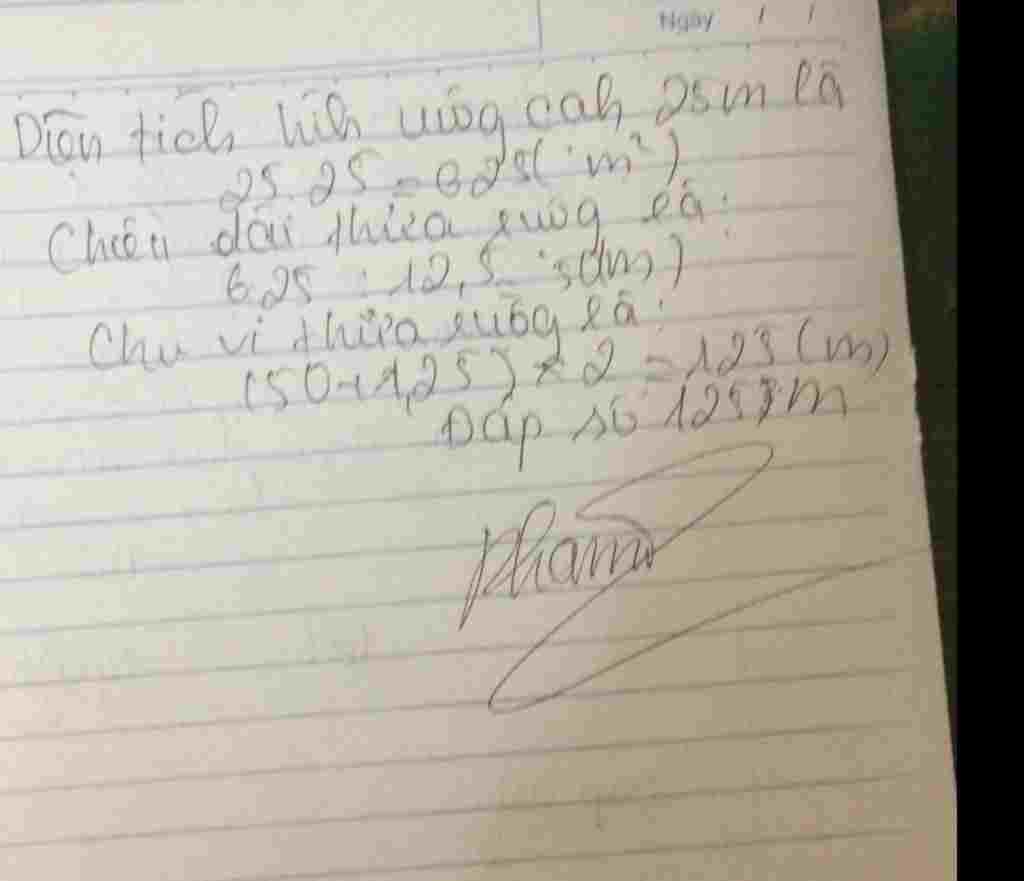 Ngày / /
Diện tích hìh vuôg cah 25m là
25.25 = 625( m²)
Chiều dài thửa ruộg là:
625 : 12,5 = (m)
Chu vi thửa ruộg là:
(50+1,25) × 2 = 125 (m)
Đáp số 125 m
Pham